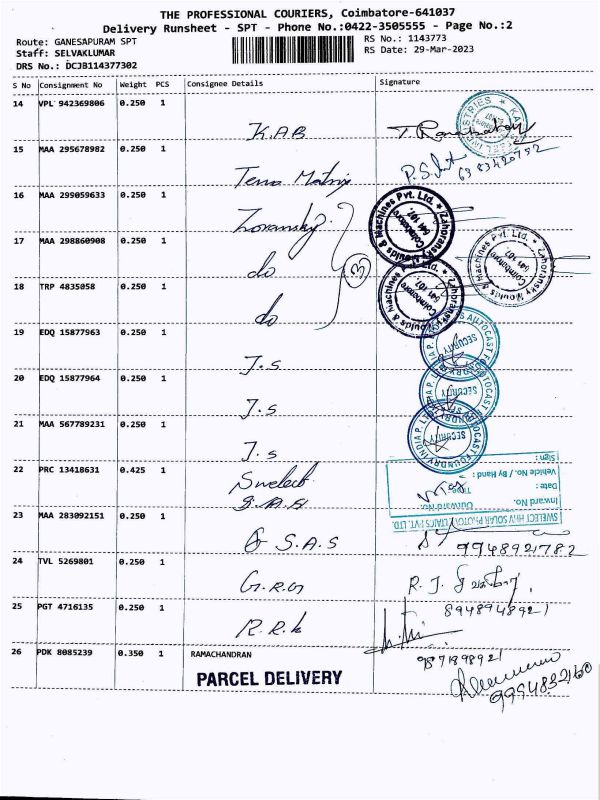 THE PROFESSIONAL COURIERS, Coimbatore-641037
Delivery Runsheet - SPT - Phone No.:0422-3505555 - Page No.:2
Route: GANESAPURAM SPT
Staff: SELVAKLUMAR
DRS No.: DCJB114377302
RS No.: 1143773
RS Date: 29-Mar-2023
S No Consignment No Weight PCS Consignee Details Signature
14 VPL 942369806 0.250 1 K.A.B
15 MAA 295678982 0.250 1 Terra Matrix P.S. 6383420752
16 MAA 299059633 0.250 1 Zoransky
17 MAA 298860908 0.250 1 do 3
18 TRP 4835058 0.250 1 do
Zahoransky Moulds & Machines Pvt. Ltd. Coimbatore 641 107.
Zahoransky Moulds & Machines Pvt. Ltd. Coimbatore 641 107.
Zahoransky Moulds & Machines Pvt. Ltd. Coimbatore 641 107.
19 EDQ 15877963 0.250 1 J.S SECURITY
20 EDQ 15877964 0.250 1 J.S
21 MAA 567789231 0.250 1 J.S SECURITY
22 PRC 13418631 0.425 1 Swelect
SWELECT HHV SOLAR PHOTOVOLTAICS PVT. LTD.
Inward No.
Outward No.
Date :
Time
Vehicle No. / By Hand :
Sign :
23 MAA 283092151 0.250 1 G S.A.S 9948921782
24 TVL 5269801 0.250 1 G.R.G R.J.
8948948921
25 PGT 4716135 0.250 1 R.R.K
9871398921
26 PDK 8085239 0.350 1 RAMACHANDRAN
PARCEL DELIVERY
9994832160